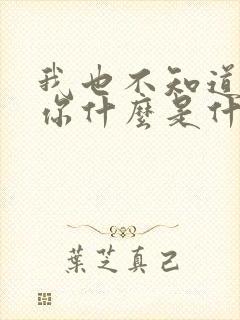 我也不知道
你什麼是什
葉芝真己